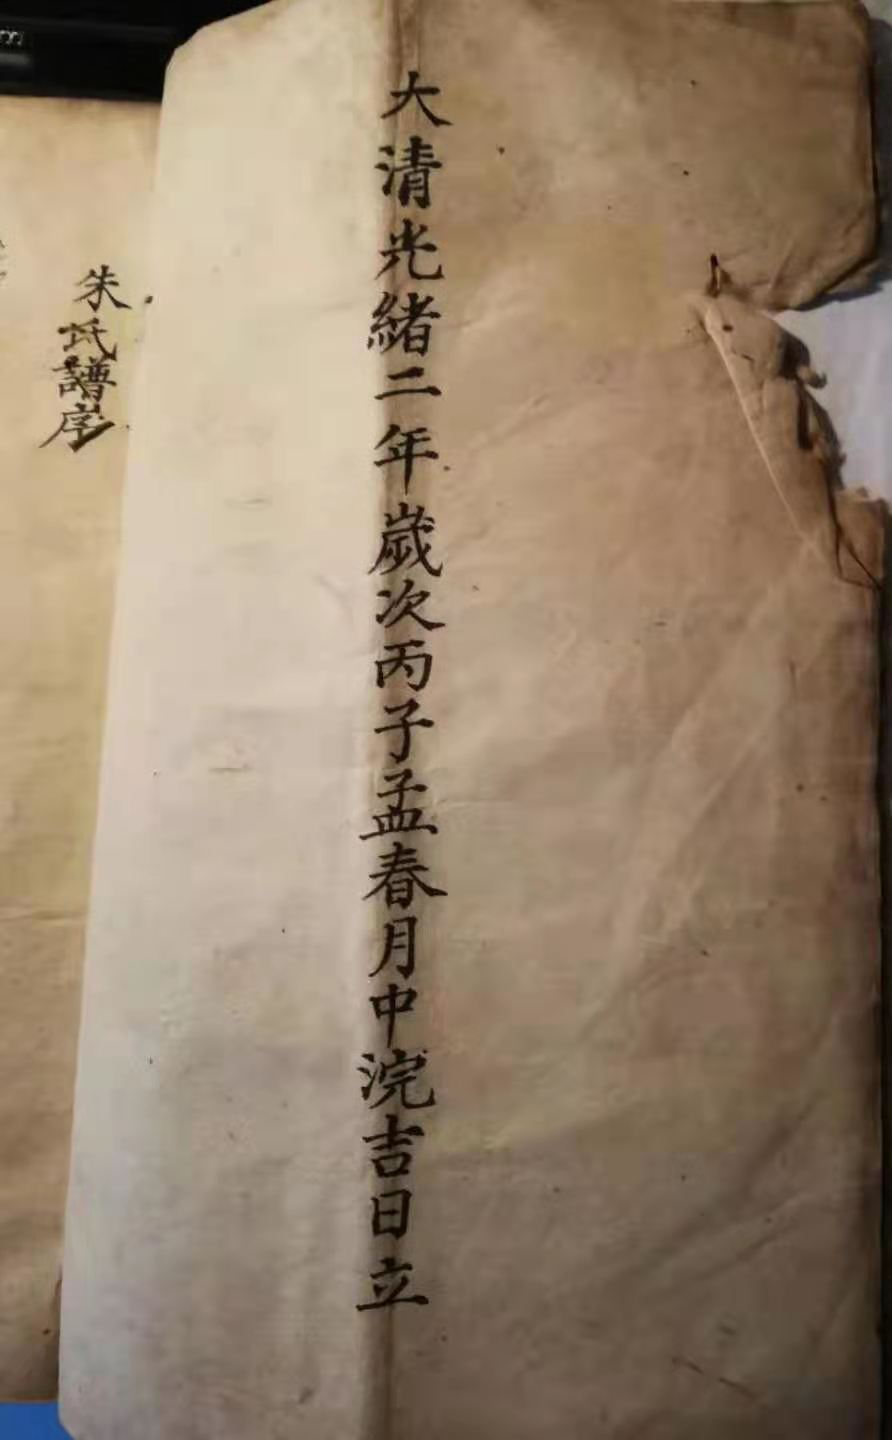 大清光緒二年歲次丙子孟春月中浣吉日立
朱氏譜序